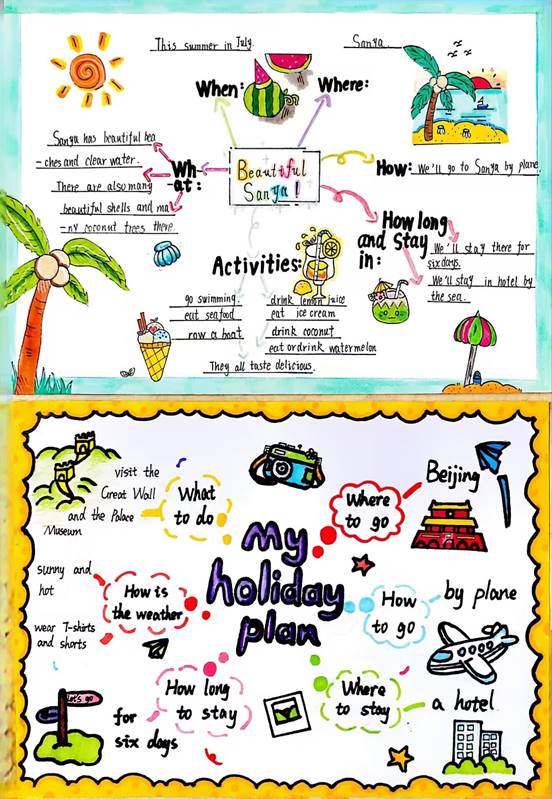 This summer in July.
Sanya.
When:
Where:
Sanya has beautiful bea
-ches and clear water.
There are also many
beautiful shells and ma
-ny coconut trees there.
Wh
-at:
Beautiful
Sanya!
How: We'll go to Sanya by plane.
How long
and Stay
in:
We'll stay there for
six days.
We'll stay in hotel by
the sea.
Activities:
go swimming.
eat seafood
row a boat
drink lemon juice
eat ice cream
drink coconut
eat or drink watermelon
They all taste delicious.
visit the
Great Wall
and the Palace
Museum
What
to do
Where
to go
Beijing
My
holiday
plan
sunny and
hot
wear T-shirts
and shorts
How is
the weather
How
to go
by plane
Let's go
for
six days
How long
to stay
Where
to stay
a hotel